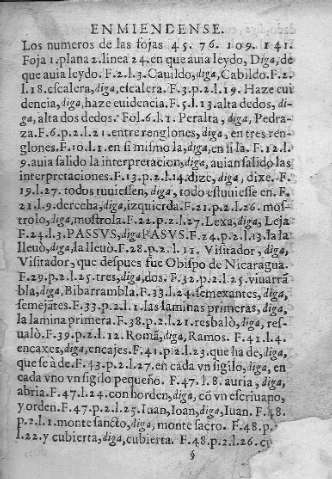 ENMIENDENSE.
Los numeros de las fojas 45. 76. 109. 141.
Foja 1. plana 2. linea 24. en que auia leydo, Diga, de
que auia leydo. F.2.l.3. Cauildo, diga, Cabildo. F.2.
l.18. escalera, diga, escalera. F.3.p.2.l.19. Haze cui
dencia, diga, haze euidencia. F.5.l.13. alta dedos, di-
ga, alta dos dedos. Fol.6.l.1. Peralta, diga, Pedra-
za. F.6.p.2.l.21. entre ronglones, diga, en tres ren-
glones. F.10.l.1. en si mismo la, diga, en si la. F.12.l.
9. auia salido la interpretacion, diga, auian salido las
interpretaciones. F.13.p.2.l.14. dize, diga, dixe. F.
19.l.27. todos tuuiessen, diga, todo estuuiesse en. F.
21.l.9. derecha, diga, izquierda. F.21.p.2.l.26. mos-
trolo, diga, mostrola. F.22.p.2.l.27. Lexa, diga, Leja
F.24.l.3. PASSVS, diga PASVS. F.24.p.2.l.13. la la
lleuò, diga, la lleuò. F.28.p.2.l.11. Visitador, diga,
Visitador, que despues fue Obispo de Nicaragua.
F.29.p.2.l.25. tres, diga, dos. F.32.p.2.l.25. viuarrã
bla, diga, Bibarrambla. F.33.l.24. semexantes, diga,
semejãtes. F.33.p.2.l.1. las laminas primeras, diga,
la lamina primera. F.38.p.2.l.21. resbalò, diga, res-
ualò. F.39.p.2.l.12. Romã, diga, Ramos. F.41.l.4.
encaxes, diga, encajes. F.41.p.2.l.23. que ha de, diga,
que se à de. F.43.p.2.l.27. en cada vn sigilo, diga, en
cada vno vn sigilo pequeño. F.47.l.8. auria, diga,
abria. F.47.l.24. con horden, diga, cõ vn escriuapo,
y orden. F.47.p.2.l.25. Iuan, Ioan, diga, Iuan. F.48.
p.2.l.1. monte sancto, diga, monte sacro. F.48.p.
l.22. y cubierta, diga, cubierta. F.48.p.2.l.26.
§